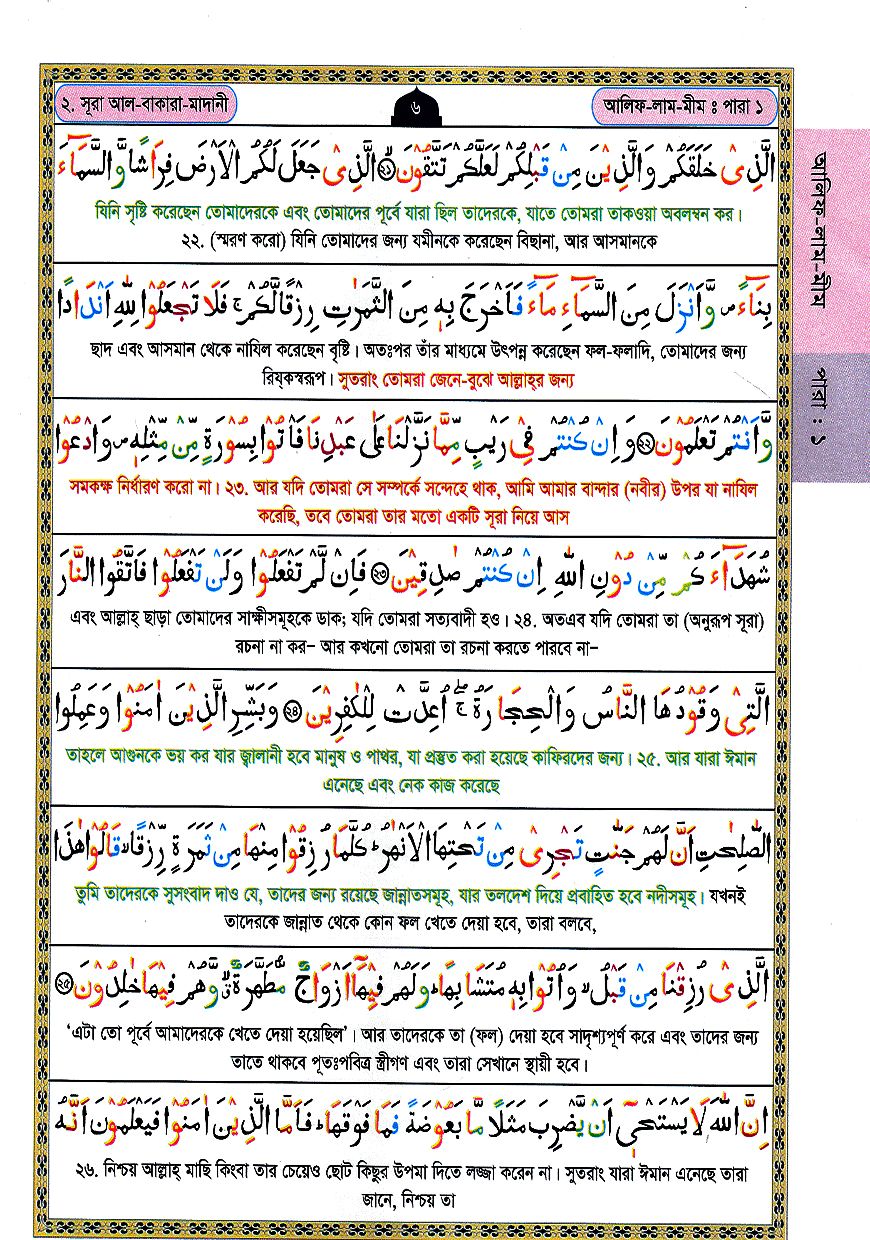 ২. সূরা আল-বাকারা-মাদানী
৬
আলিফ-লাম-মীম ঃ পারা ১
الَّذِىْ خَلَقَكُمْ وَالَّذِيْنَ مِنْ قَبْلِكُمْ لَعَلَّكُمْ تَتَّقُوْنَ ۝٢١ الَّذِىْ جَعَلَ لَكُمُ الْاَرْضَ فِرَاشًا وَّالسَّمَآءَ
যিনি সৃষ্টি করেছেন তোমাদেরকে এবং তোমাদের পূর্বে যারা ছিল তাদেরকে, যাতে তোমরা তাকওয়া অবলম্বন কর।
২২. (স্মরণ করো) যিনি তোমাদের জন্য যমীনকে করেছেন বিছানা, আর আসমানকে
بِنَآءً ۪ وَّاَنْزَلَ مِنَ السَّمَآءِ مَآءً فَاَخْرَجَ بِهٖ مِنَ الثَّمَرٰتِ رِزْقًا لَّكُمْ ۚ فَلَا تَجْعَلُوْا لِلّٰهِ اَنْدَادًا
ছাদ এবং আসমান থেকে নাযিল করেছেন বৃষ্টি। অতঃপর তাঁর মাধ্যমে উৎপন্ন করেছেন ফল-ফলাদি, তোমাদের জন্য
রিয্‌কস্বরূপ। সুতরাং তোমরা জেনে-বুঝে আল্লাহ্‌র জন্য
وَّاَنْتُمْ تَعْلَمُوْنَ ۝٢٢ وَاِنْ كُنْتُمْ فِىْ رَيْبٍ مِّمَّا نَزَّلْنَا عَلٰى عَبْدِنَا فَاْتُوْا بِسُوْرَةٍ مِّنْ مِّثْلِهٖ ۪ وَادْعُوْا
সমকক্ষ নির্ধারণ করো না। ২৩. আর যদি তোমরা সে সম্পর্কে সন্দেহে থাক, আমি আমার বান্দার (নবীর) উপর যা নাযিল
করেছি, তবে তোমরা তার মতো একটি সূরা নিয়ে আস
شُهَدَآءَكُمْ مِّنْ دُوْنِ اللّٰهِ اِنْ كُنْتُمْ صٰدِقِيْنَ ۝٢٣ فَاِنْ لَّمْ تَفْعَلُوْا وَلَنْ تَفْعَلُوْا فَاتَّقُوا النَّارَ
এবং আল্লাহ্ ছাড়া তোমাদের সাক্ষীসমূহকে ডাক; যদি তোমরা সত্যবাদী হও। ২৪. অতএব যদি তোমরা তা (অনুরূপ সূরা)
রচনা না কর– আর কখনো তোমরা তা রচনা করতে পারবে না–
الَّتِىْ وَقُوْدُهَا النَّاسُ وَالْحِجَارَةُ ۖۚ اُعِدَّتْ لِلْكٰفِرِيْنَ ۝٢٤ وَبَشِّرِ الَّذِيْنَ اٰمَنُوْا وَعَمِلُوا
তাহলে আগুনকে ভয় কর যার জ্বালানী হবে মানুষ ও পাথর, যা প্রস্তুত করা হয়েছে কাফিরদের জন্য। ২৫. আর যারা ঈমান
এনেছে এবং নেক কাজ করেছে
الصّٰلِحٰتِ اَنَّ لَهُمْ جَنّٰتٍ تَجْرِىْ مِنْ تَحْتِهَا الْاَنْهٰرُ ؕ كُلَّمَا رُزِقُوْا مِنْهَا مِنْ ثَمَرَةٍ رِّزْقًا ۙ قَالُوْا هٰذَا
তুমি তাদেরকে সুসংবাদ দাও যে, তাদের জন্য রয়েছে জান্নাতসমূহ, যার তলদেশ দিয়ে প্রবাহিত হবে নদীসমূহ। যখনই
তাদেরকে জান্নাত থেকে কোন ফল খেতে দেয়া হবে, তারা বলবে,
الَّذِىْ رُزِقْنَا مِنْ قَبْلُ ۙ وَاُتُوْا بِهٖ مُتَشَابِهًا ؕ وَلَهُمْ فِيْهَآ اَزْوَاجٌ مُّطَهَّرَةٌ ۙ وَّهُمْ فِيْهَا خٰلِدُوْنَ ۝٢٥
‘এটা তো পূর্বে আমাদেরকে খেতে দেয়া হয়েছিল’। আর তাদেরকে তা (ফল) দেয়া হবে সাদৃশ্যপূর্ণ করে এবং তাদের জন্য
তাতে থাকবে পূতঃপবিত্র স্ত্রীগণ এবং তারা সেখানে স্থায়ী হবে।
اِنَّ اللّٰهَ لَا يَسْتَحْىٖٓ اَنْ يَّضْرِبَ مَثَلًا مَّا بَعُوْضَةً فَمَا فَوْقَهَا ؕ فَاَمَّا الَّذِيْنَ اٰمَنُوْا فَيَعْلَمُوْنَ اَنَّهُ
২৬. নিশ্চয় আল্লাহ্ মাছি কিংবা তার চেয়েও ছোট কিছুর উপমা দিতে লজ্জা করেন না। সুতরাং যারা ঈমান এনেছে তারা
জানে, নিশ্চয় তা
আলিফ-লাম-মীম
পারা : ১